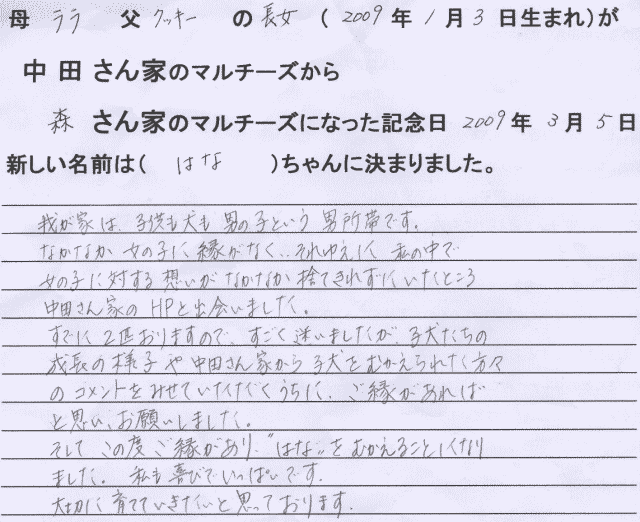 母 ララ 父 クッキー の 長女 ( 2009 年 1 月 3 日生まれ)が
中田さん家のマルチーズから
森 さん家のマルチーズになった記念日 2009 年 3 月 5 日
新しい名前は( はな )ちゃんに決まりました。
我が家は、子供も犬も男の子という男所帯です。
なかなか女の子に縁がなく、、それゆえに 私の中で
女の子に対する想いがなかなか捨てきれずにいたところ
中田さん家のHPと出会いました。
すでに2匹おりますので、すごく迷いましたが、子犬たちの
成長の様子や中田さん家から子犬をむかえられた方々
のコメントをみせていただくうちに、ご縁があれば
と思い、お願いしました。
そして この度 ご縁があり、"はな"をむかえることになり
ました。 私も喜びでいっぱいです。
大切に育てていきたいと思っております。